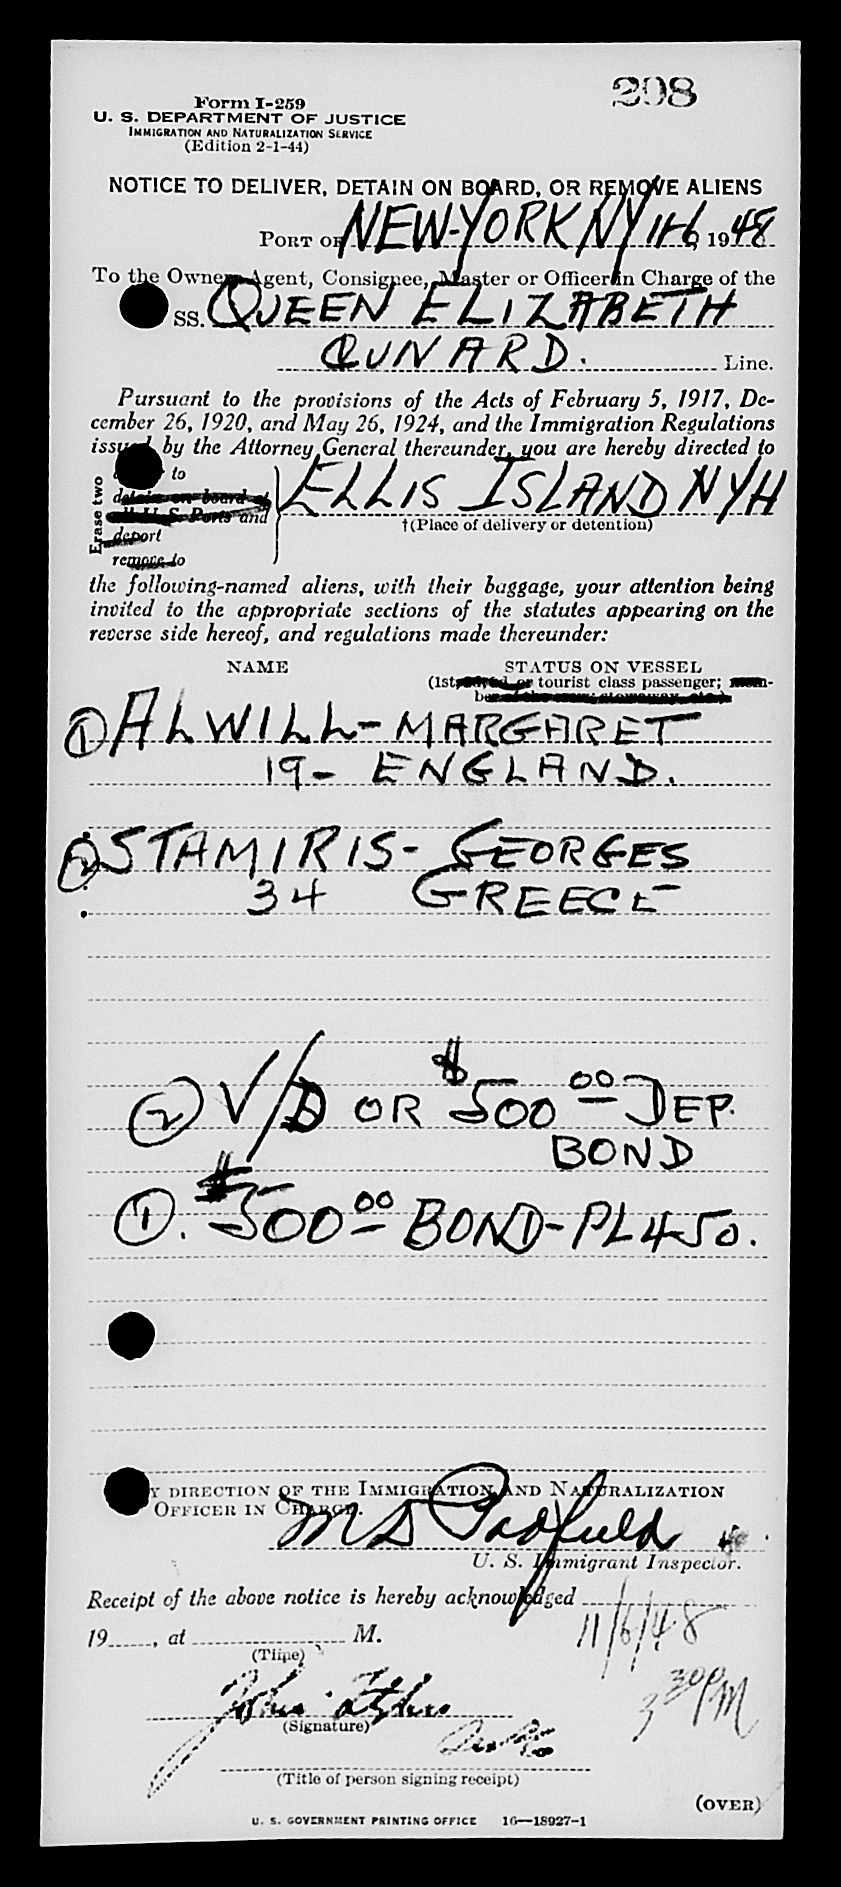 298
Form I-259
U. S. DEPARTMENT OF JUSTICE
IMMIGRATION AND NATURALIZATION SERVICE
(Edition 2-1-44)
NOTICE TO DELIVER, DETAIN ON BOARD, OR REMOVE ALIENS
PORT OF NEW-YORK NY 11-6, 1948
To the Owner, Agent, Consignee, Master or Officer in Charge of the
SS. QUEEN ELIZABETH
CUNARD. Line.
Pursuant to the provisions of the Acts of February 5, 1917, De-
cember 26, 1920, and May 26, 1924, and the Immigration Regulations
issued by the Attorney General thereunder, you are hereby directed to
Erase two
to
detain on board at
all U. S. Ports and
deport
remove to
ELLIS ISLAND NYH
†(Place of delivery or detention)
the following-named aliens, with their baggage, your attention being
invited to the appropriate sections of the statutes appearing on the
reverse side hereof, and regulations made thereunder:
NAME STATUS ON VESSEL
(1st, or tourist class passenger; mem-
ber of the crew; stowaway, etc.)
① ALWILL - MARGARET
19 - ENGLAND.
② STAMIRIS - GEORGES
34 GREECE
② V/D OR $500 00 DEP.
BOND
①. $500 00 BOND - PL 450.
BY DIRECTION OF THE IMMIGRATION AND NATURALIZATION
OFFICER IN CHARGE.
M S Padfield
U. S. Immigrant Inspector.
Receipt of the above notice is hereby acknowledged
19, at M. 11/6/48
(Time)
3 30 PM
John
(Signature)
(Title of person signing receipt)
(OVER)
U. S. GOVERNMENT PRINTING OFFICE 16—18927-1